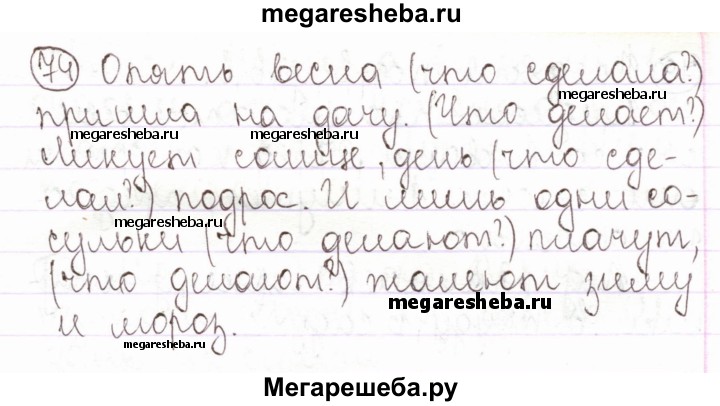 megaresheba.ru
74 Опять весна (что сделала?)
megaresheba.ru
пришла на дачу. (Что делает?)
megaresheba.ru megaresheba.ru
Ликует солнце, день (что сде-
лал?) подрос. И лишь одни со-
megaresheba.ru
сульки (что делают?) плачут,
(что делают?) жалеют зиму
megaresheba.ru
и мороз.
megaresheba.ru
Мегарешеба.ру